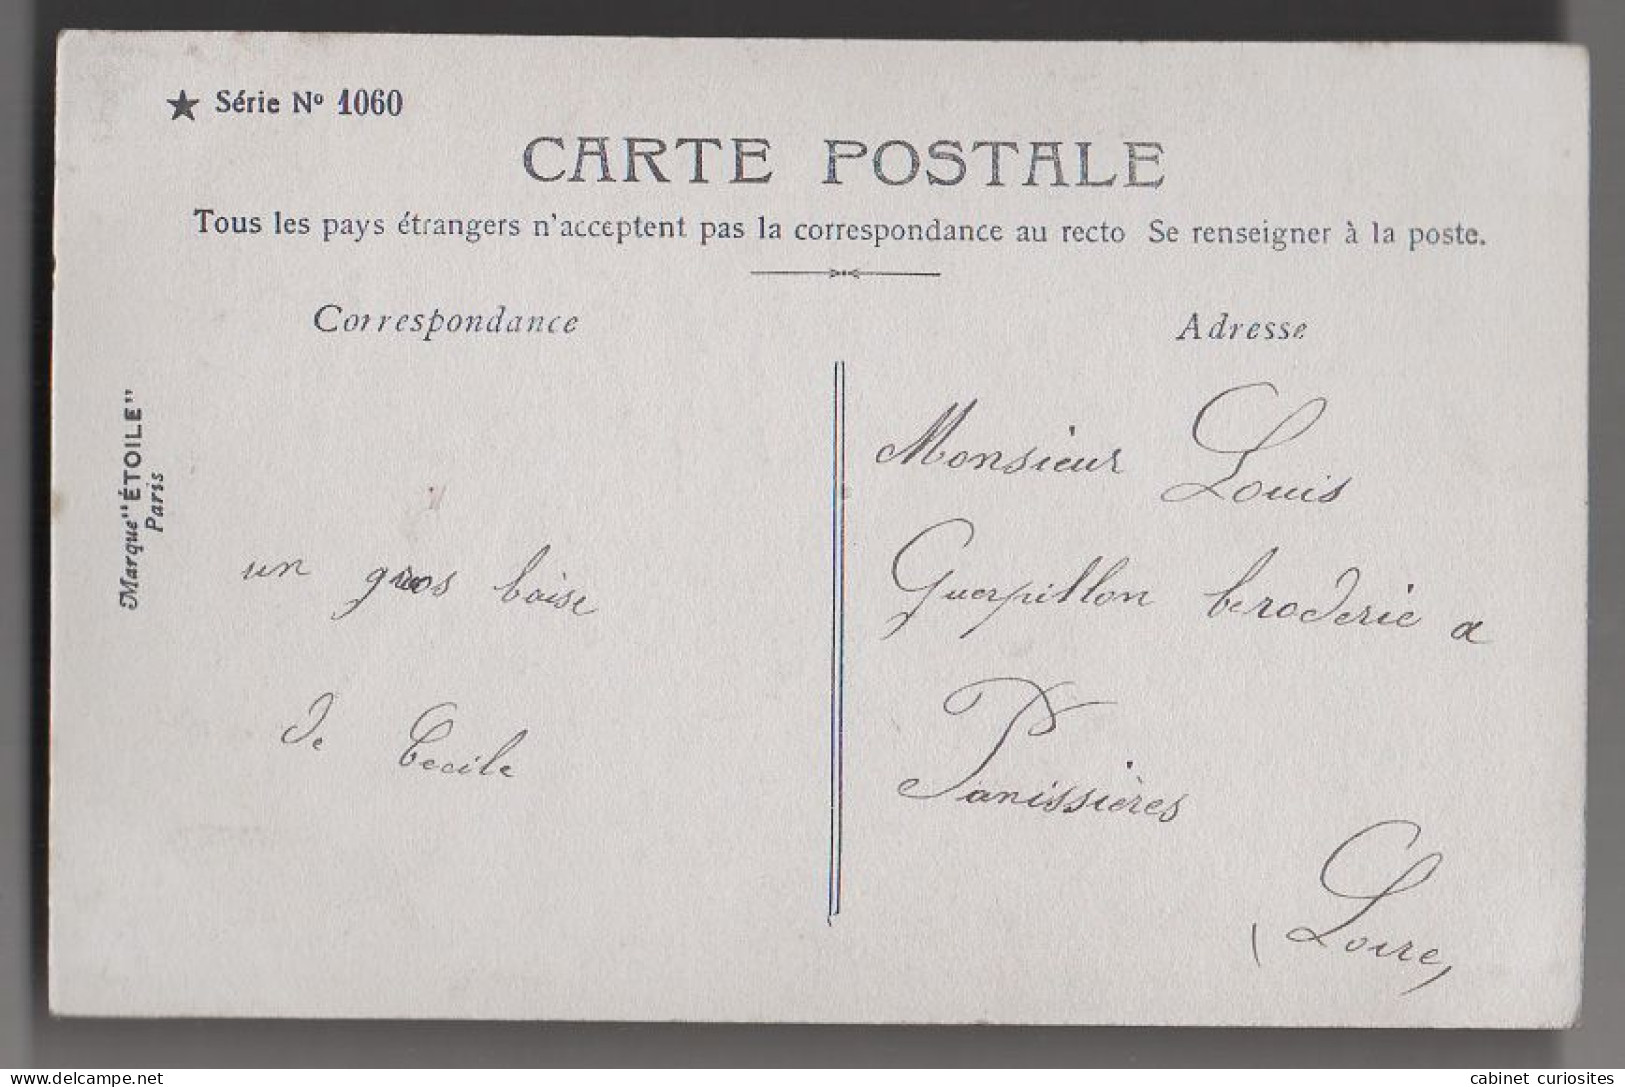 ★ Série Nº 1060
CARTE POSTALE
Tous les pays étrangers n'acceptent pas la correspondance au recto Se renseigner à la poste.
Correspondance
Adresse
Marque "ÉTOILE"
Paris
un gros baise
de Cecile
Monsieur Louis
Guerpillon beroderie a
Panissières
(Loire)
cabinet curiosites
www.delcampe.net